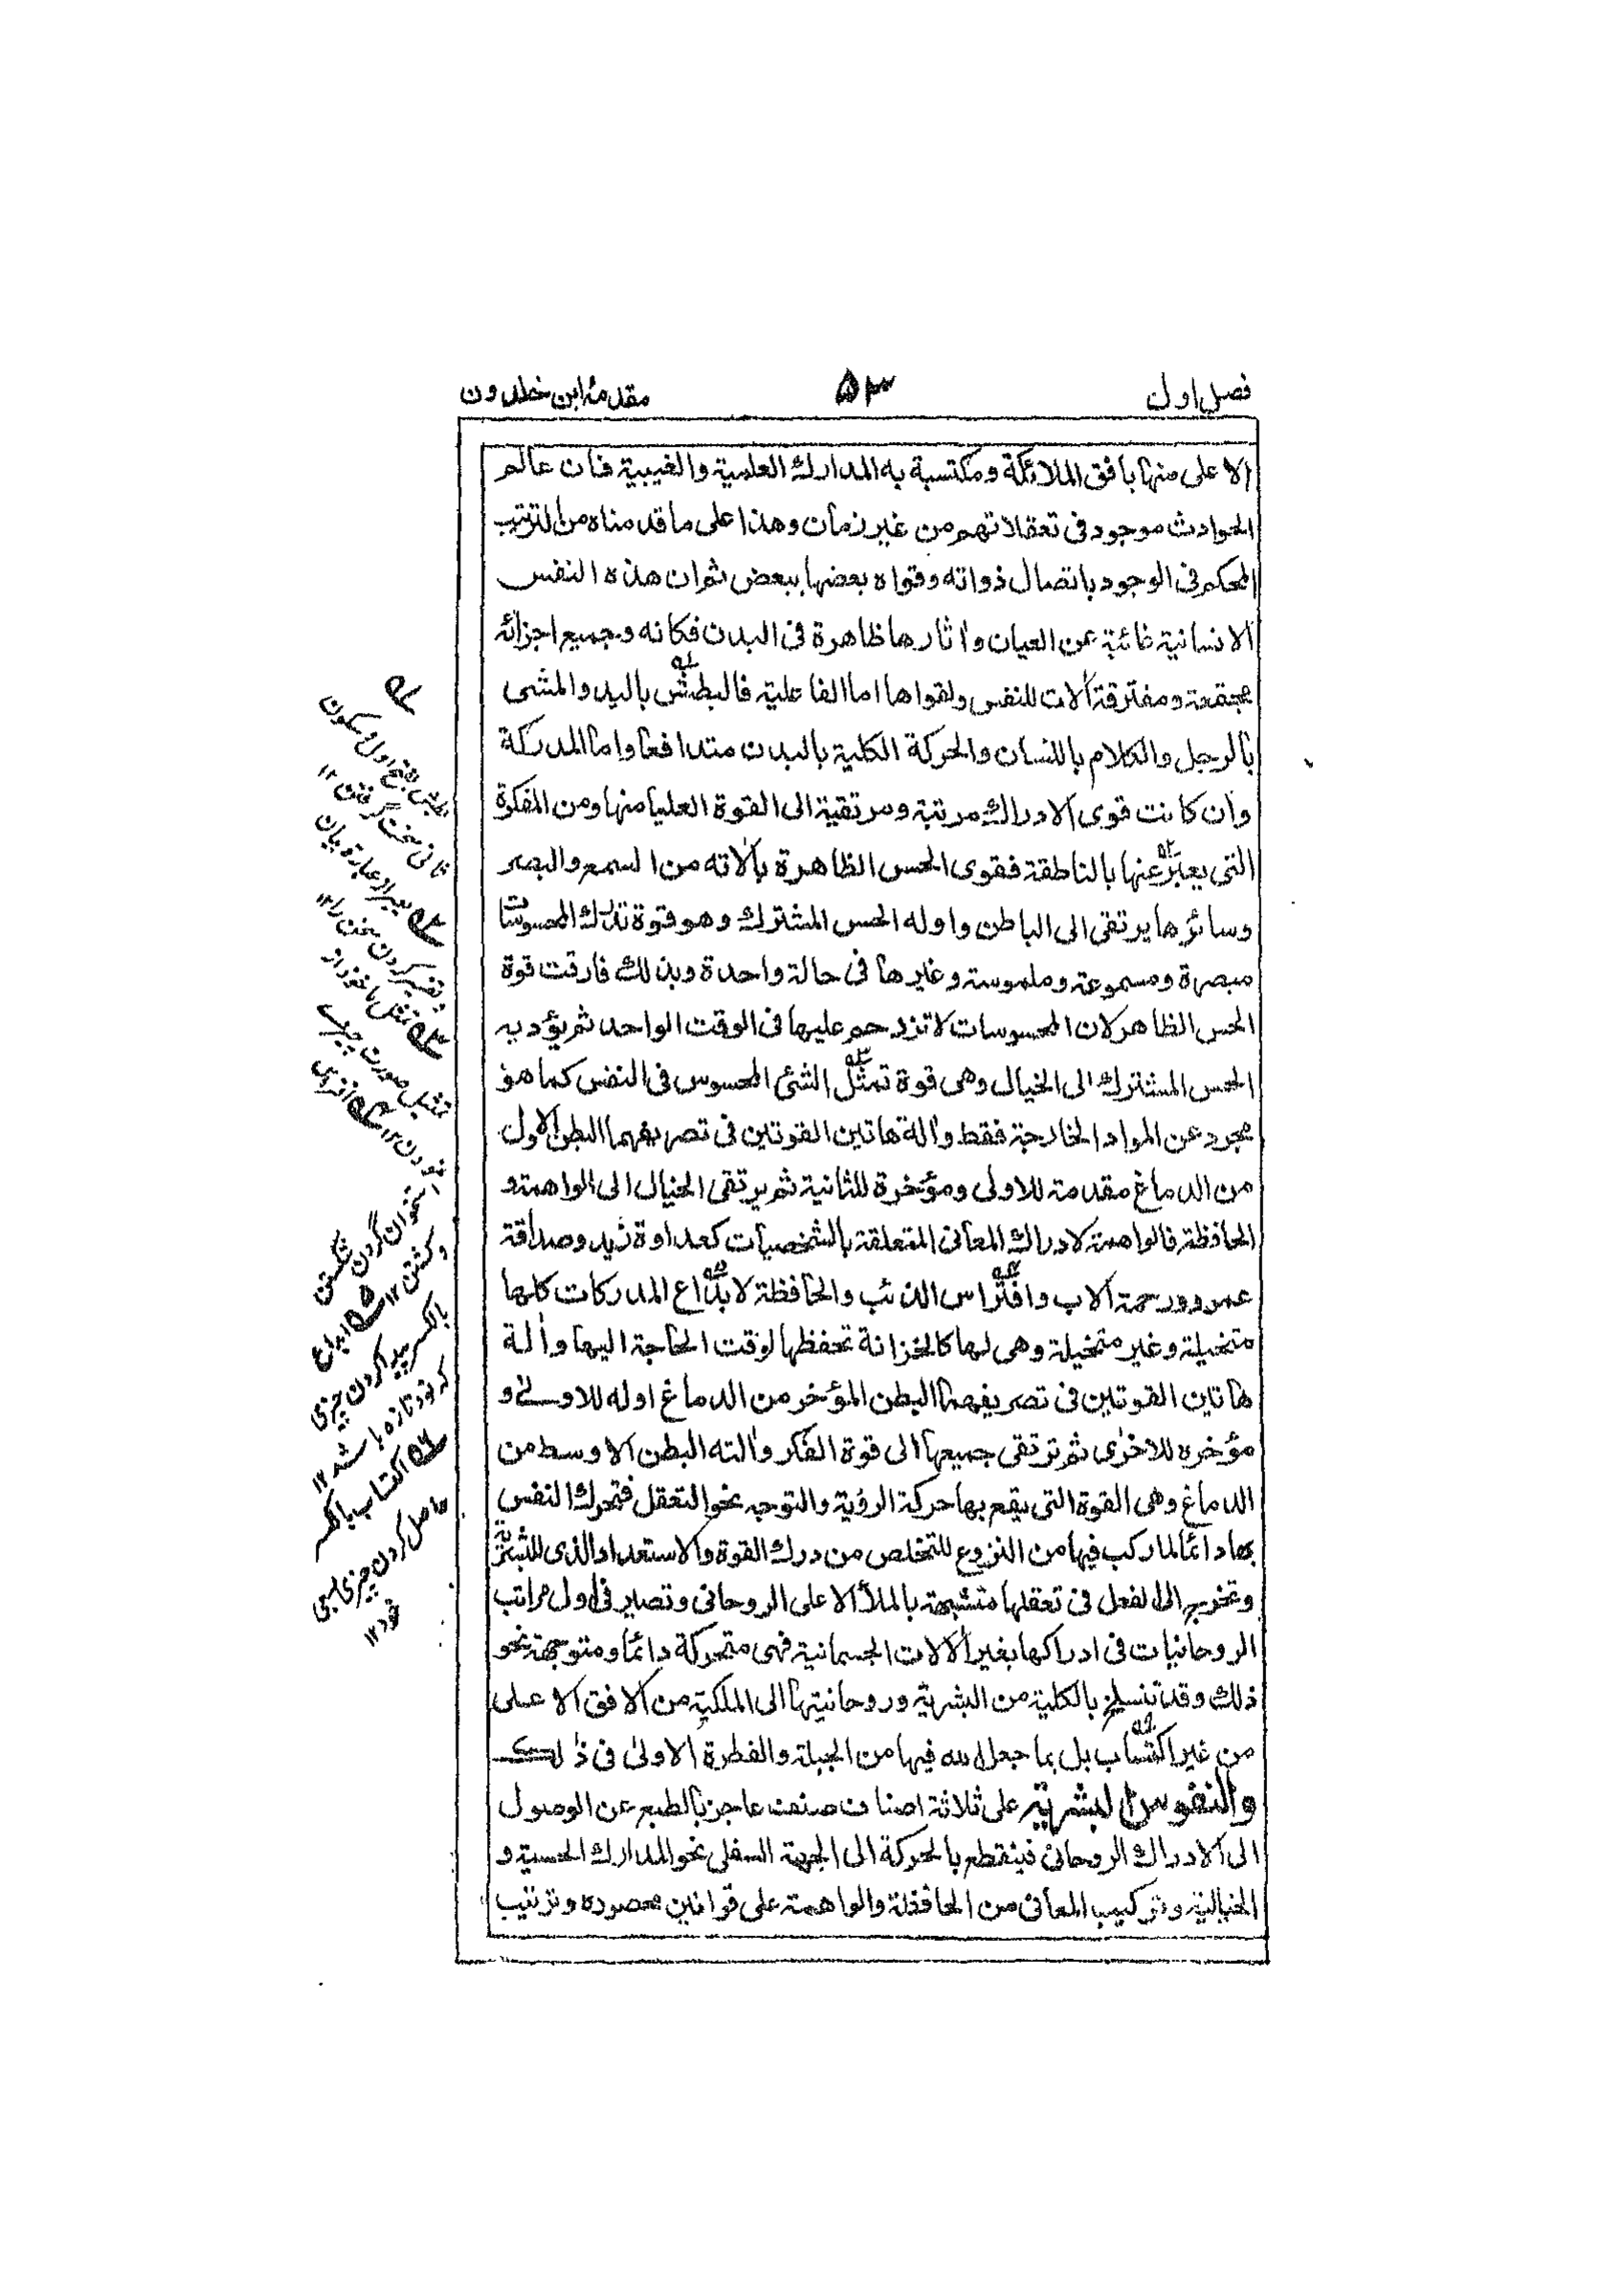 فصل اول
۵۳
مقدمۂ ابن خلدون
الاعلى منها بافق الملائكة ومكتسبة به المدارك العلمية والغيبية فان عالم
الحوادث موجود فى تعقلاتهم من غير زمان وهذا على ما قدمناه من الترتيب
المحكم فى الوجود باتصال ذواته وقواه بعضها ببعض ثم ان هذه النفس
الانسانية غائبة عن العيان واٰثارها ظاهرة فى البدن فكانه وجميع اجزائه
مجتمعة ومفترقة اٰلات للنفس ولقواها اما الفاعلية فالبطش باليد والمشى
بالرجل والكلام باللسان والحركة الكلية بالبدن متدافعا واما المدركة
وان كانت قوى الادراك مرتبة ومرتقية الى القوة العليا منها ومن المفكرة
التى يعبر عنها بالناطقة فقوى الحس الظاهرة بٰالاته من السمع والبصر
وسائرها يرتقى الى الباطن واوله الحس المشترك وهو قوة تدرك المحسوسات
مبصرة ومسموعة وملموسة وغيرها فى حالة واحدة وبذلك فارقت قوة
الحس الظاهر لان المحسوسات لا تزدحم عليها فى الوقت الواحد ثم يؤديه
الحس المشترك الى الخيال وهى قوة تمثل الشئ المحسوس فى النفس كما هو
مجرد عن المواد الخارجة فقط واٰلة هاتين القوتين فى تصريفهما البطن الاول
من الدماغ مقدمة للاولى ومؤخرة للثانية ثم يرتقى الخيال الى الواهمة و
الحافظة فالواهمة لادراك المعانى المتعلقة بالشخصيات كعداوة زيد وصداقة
عمرو ورحمة الاب وافتراس الذئب والحافظة لابداع المدركات كلها
متخيلة وغير متخيلة وهى لها كالخزانة تحفظها لوقت الحاجة اليها واٰلة
هاتين القوتين فى تصريفهما البطن المؤخر من الدماغ اوله للاولىٰ و
مؤخره للاخرٰى ثم ترتقى جميعها الى قوة الفكر واٰلته البطن الاوسط من
الدماغ وهى القوة التى يقع بها حركة الرؤية والتوجه نحو التعقل فتحرك النفس
بها دائما لما ركب فيها من النزوع للتخلص من درك القوة والاستعداد الذى للبشرية
وتخرج الى الفعل فى تعقلها متشبهة بالملأ الاعلى الروحانى وتصير فى اول مراتب
الروحانيات فى ادراكها بغير الاٰلات الجسمانية فهى متحركة دائما ومتوجهة نحو
ذلك وقد تنسلخ بالكلية من البشرية وروحانيتها الى الملكية من الافق الاعلى
من غير اكتساب بل بما جعل الله فيها من الجبلة والفطرة الاولىٰ فى ذٰلك
والنفوس البشرية على ثلاثة اصناف صنف عاجز بالطبع عن الوصول
الى الادراك الروحانى فينقطع بالحركة الى الجهة السفلى نحو المدارك الحسية و
الخيالية وتركيب المعانى من الحافظة والواهمة على قوانين محصوره وترتيب
بطش بفتح اول و سكون
ثانى سخت گرفتن ۱۲
تعبير از عبارة وبيان
و تفسير كردن سخن را ۱۲
تمثل ماخوذ از
تمثيل صورت چيزے
نمودن ۱۲ افتراس
استخوان گردن شكستن
و كشتن ۱۲ ابداع
بالكسر پيدا كردن چيزى
كه نو و تازه باشد ۱۲
اكتساب بالكسر
حاصل كردن چيزى بسعى
خود ۱۲